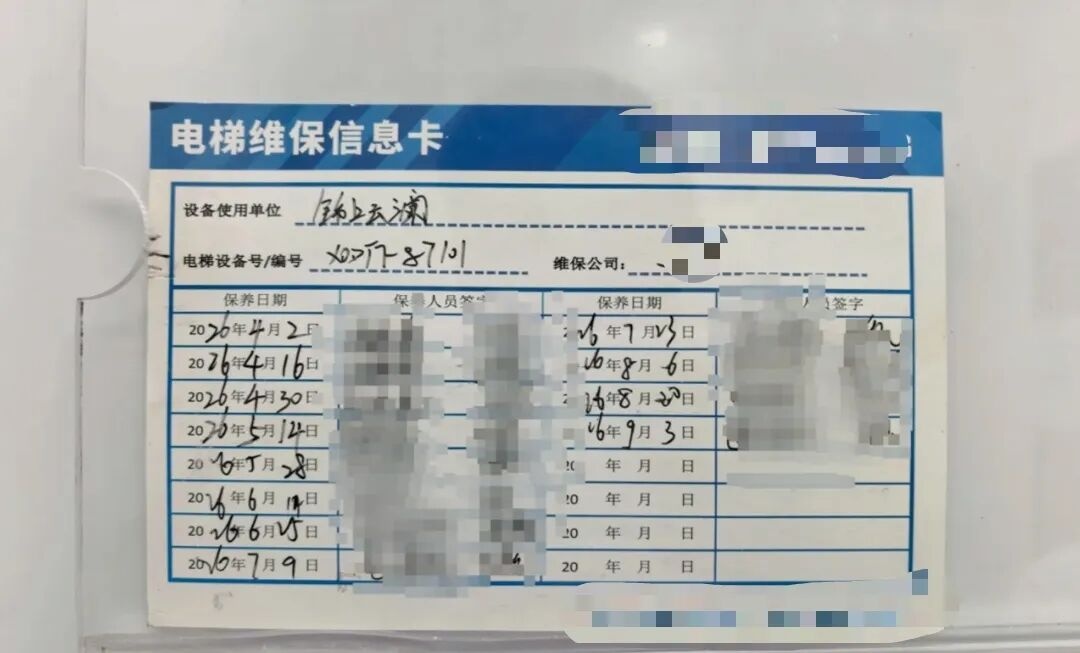 电梯维保信息卡
设备使用单位 锦上云澜
电梯设备号/编号 维保公司:
保养日期 保养人员签字 保养日期 人员签字
2026年4月2日 26年7月23日
2026年4月16日 26年8月6日
2026年4月30日 26年8月20日
2026年5月14日 26年9月3日
2026年5月28日 20 年 月 日
2026年6月 日 20 年 月 日
2026年6月25日 20 年 月 日
2026年7月9日 20 年 月 日